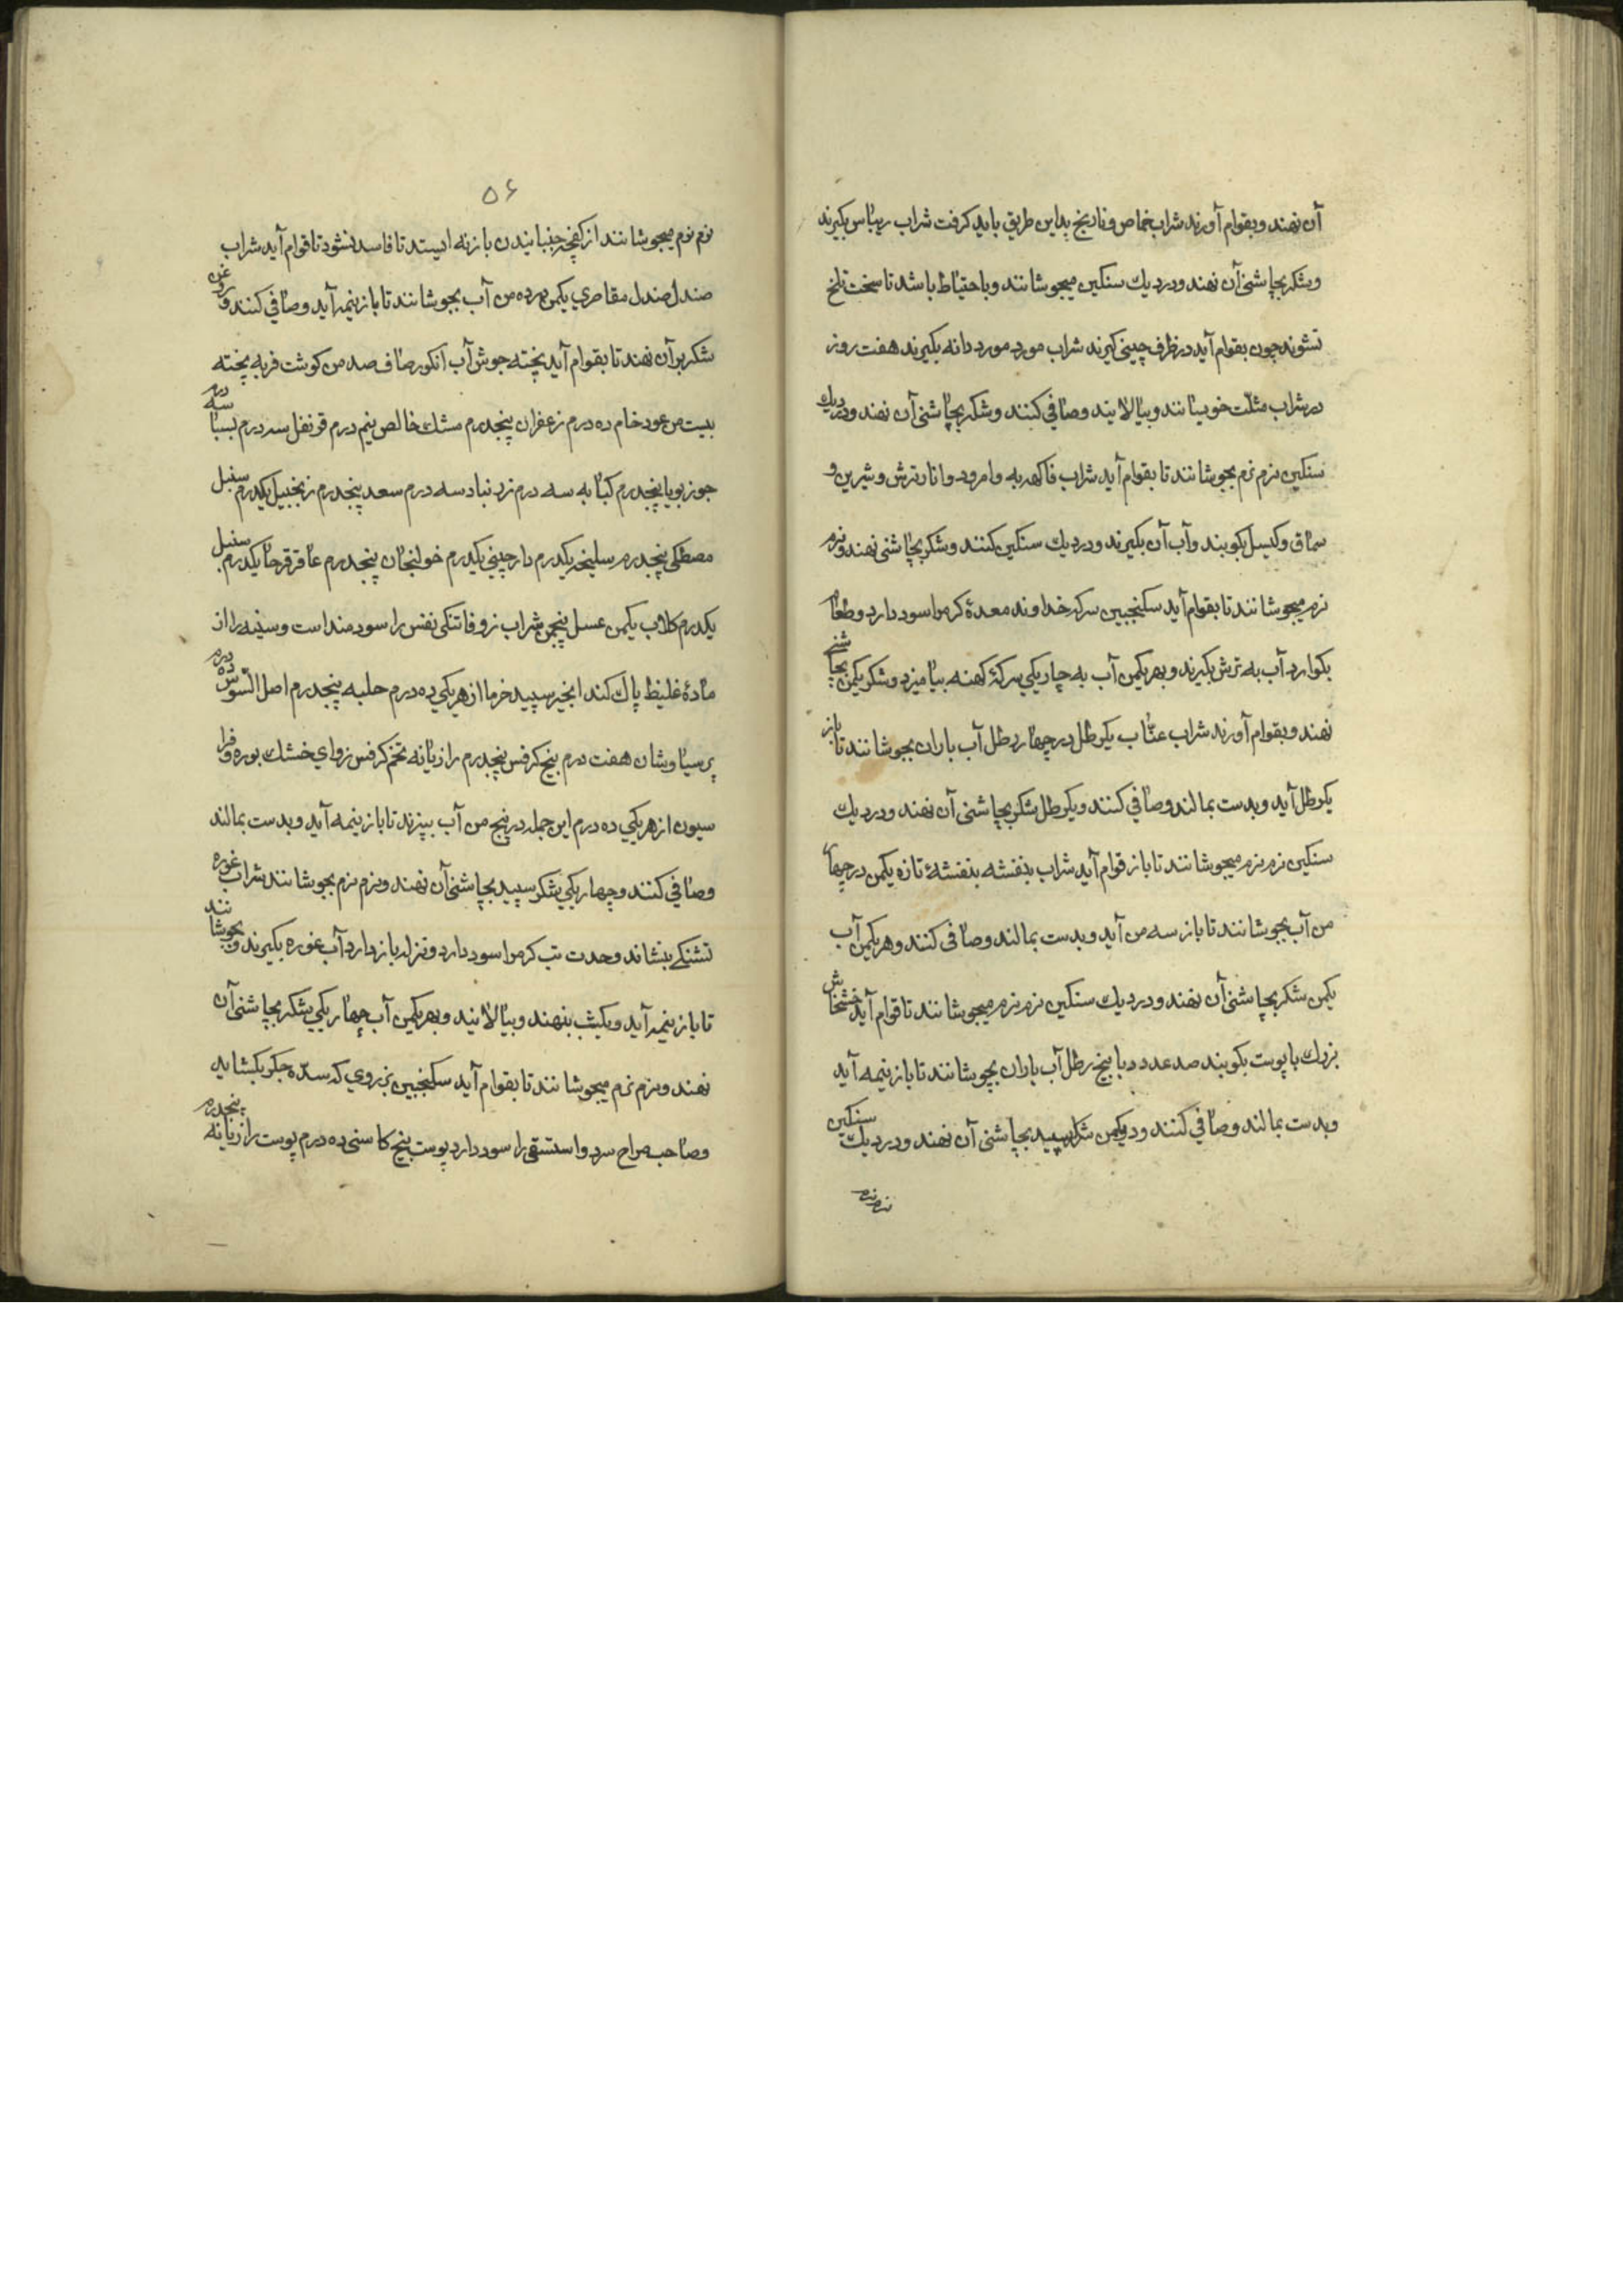 آن نهند و بقوام آورند شراب حماض و نارنج بداین طریق باید کرفت شراب ریباس بکیرند
و شکر بچاشنی آن نهند و در دیك سنکین میجوشانند و با حتیاط باشد تا سخت تلخ
نشوند چون بقوام آید در ظرف چینی کیرند شراب مورد مورد دانه بکیرند هفت روز
در شراب مثلث خویسانند و بپالایند و صافی کنند و شکر بچاشنی آن نهند و در دیك
سنکین نرم نرم بجوشانند تا بقوام آید شراب فاکهه به و امرود و انار ترش و شیرین و
سماق و کیسل بکوبند و آب آن بکیرند و در دیك سنکین کنند و شکر بچاشنی نهند و نرم
نرم میجوشانند تا بقوام آید سکنجبین سرکه خداوند معدهٔ کرم را سود دارد و طعام
بکوارد آب به ترش بکیرند و بهر یکمن آب به چار یکی سرکهٔ کهنه بیامیزد و شکر یکمن بچاشنی
نهند و بقوام آورند شراب عنّاب یکرطل در چهار رطل آب باران بجوشانند تا باز
یکرطل آید و بدست بمالند و صافی کنند و یکرطل شکر بچاشنی آن نهند و در دیك
سنکین نرم نرم میجوشانند تا باز قوام آید شراب بنفشه بنفشهٔ تازه یکمن در چهار
من آب بجوشانند تا باز سه من آید و بدست بمالند و صافی کنند و هر یکمن آب
یکمن شکر بچاشنی آن نهند و در دیك سنکین نرم نرم میجوشانند تا قوام آید خشخاش
بزرك با پوست بکوبند صد عدد با پنج رطل آب باران بجوشانند تا باز نیمه آید
و بدست بمالند و صافی کنند و یکمن شکر سپید بچاشنی آن نهند و در دیك سنکین
نرم نرم
۵۶
نرم نرم میجوشانند از کفچه جنبانیدن باز نه ایستد تا فاسد نشود تا قوام آید شراب
صندل صندل مقاصری یکمن در ده من آب بجوشانند تا باز نیمه آید و صافی کنند و روغن
شکر بر آن نهند تا بقوام آید پخته جوش آب انکور صاف صد من کوشت فربه پخته
بیست من عود خام ده درم زعفران پنجدرم مشك خالص نیم درم قرنفل سه درم بسباسه درم
جوز بویا پنجدرم کبابه سه درم زرنباد سه درم سعد پنجدرم زنجبیل یکدرم سنبل
مصطکی پنجدرم سلیخه یکدرم دارچینی یکدرم خولنجان پنجدرم عاقرقرحا یکدرم سنبل
یکدرم کلاب یکمن عسل پنجمن شراب زوفا تنکی نفس را سودمند است و سینه را از
مادهٔ غلیظ پاك کند انجیر سپید خرما از هر یکی ده درم حلبه پنجدرم اصل السّوس ده درم
پرسیاوشان هفت درم بیخ کرفس پنجدرم رازیانه تخم کرفس زوای خشك بوره و فرا
سیون از هر یکی ده درم این جمله در پنج من آب بپزند تا باز نیمه آید و بدست بمالند
و صافی کنند و چهار یکی شکر سپید بچاشنی آن نهند و نرم نرم بجوشانند شراب غوره
تشنکی بنشاند و حدت تب کرم را سود دارد و نزله باز دارد آب غوره بکیرند و بجوشانند
تا باز نیمه آید و یکشب بنهند و بپالایند و بهر یکمن آب چهار یکی شکر بچاشنی آن
نهند و نرم نرم میجوشانند تا بقوام آید سکنجبین بزروی که سدّه جکر بکشاید
و صاحب مزاج سرد و استسقی را سود دارد پوست بیخ کاسنی ده درم پوست رازیانه پنجدرم